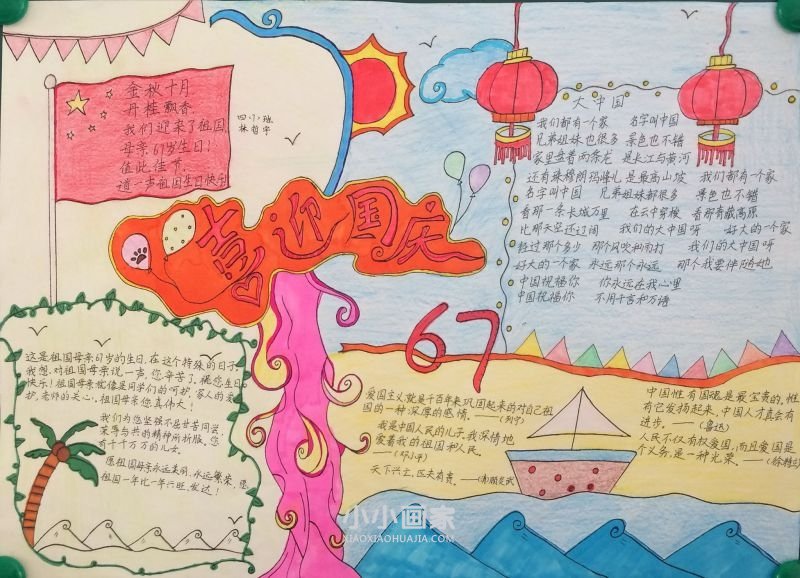 金秋十月
丹桂飘香，
我们迎来了祖国
母亲61岁生日！
值此佳节，
道一声祖国生日快乐！
四（1）班
林哲宇
喜迎国庆
67
大中国
我们都有一个家 名字叫中国
兄弟姐妹也很多 景色也不错
家里盘着两条龙 是长江与黄河
还有珠穆朗玛峰儿 是最高山坡 我们都有一个家
名字叫中国 兄弟姐妹都很多 景色也不错
看那一条长城万里 在云中穿梭 看那青藏高原
比那天空还辽阔 我们的大中国呀 好大的一个家
经过那个多少 那个风吹和雨打 我们的大中国呀
好大的一个家 永远那个永远 那个我要伴随她
中国祝福你 你永远在我心里
中国祝福你 不用千言和万语
这是祖国母亲61岁的生日，在这个特殊的日子
我想对祖国母亲说一声，您辛苦了，祝您生日
快乐！祖国母亲就像是同学们的呵护，家人的爱
护，老师的关心，祖国母亲您真伟大！
我们为您坚强不屈甘苦同尝，
荣辱与共的精神所折服，您
有千千万万的儿女。
愿祖国母亲永远美丽，永远繁荣，愿
祖国一年比一年兴旺，发达！
爱国主义就是千百年来巩固起来的对自己祖
国的一种深厚的感情。——（列宁）
我是中国人民的儿子，我深情地
爱着我的祖国和人民。
——（邓小平）
天下兴亡，匹夫有责。——（清）顾炎武
中国性有国魂是最宝贵的，惟
有它发扬起来，中国人才真会有
进步。——（鲁迅）
人民不仅有权爱国，而且爱国是
个义务，是一种光荣。——（徐特立）
小小画家
XIAOXIAOHUAJIA.COM